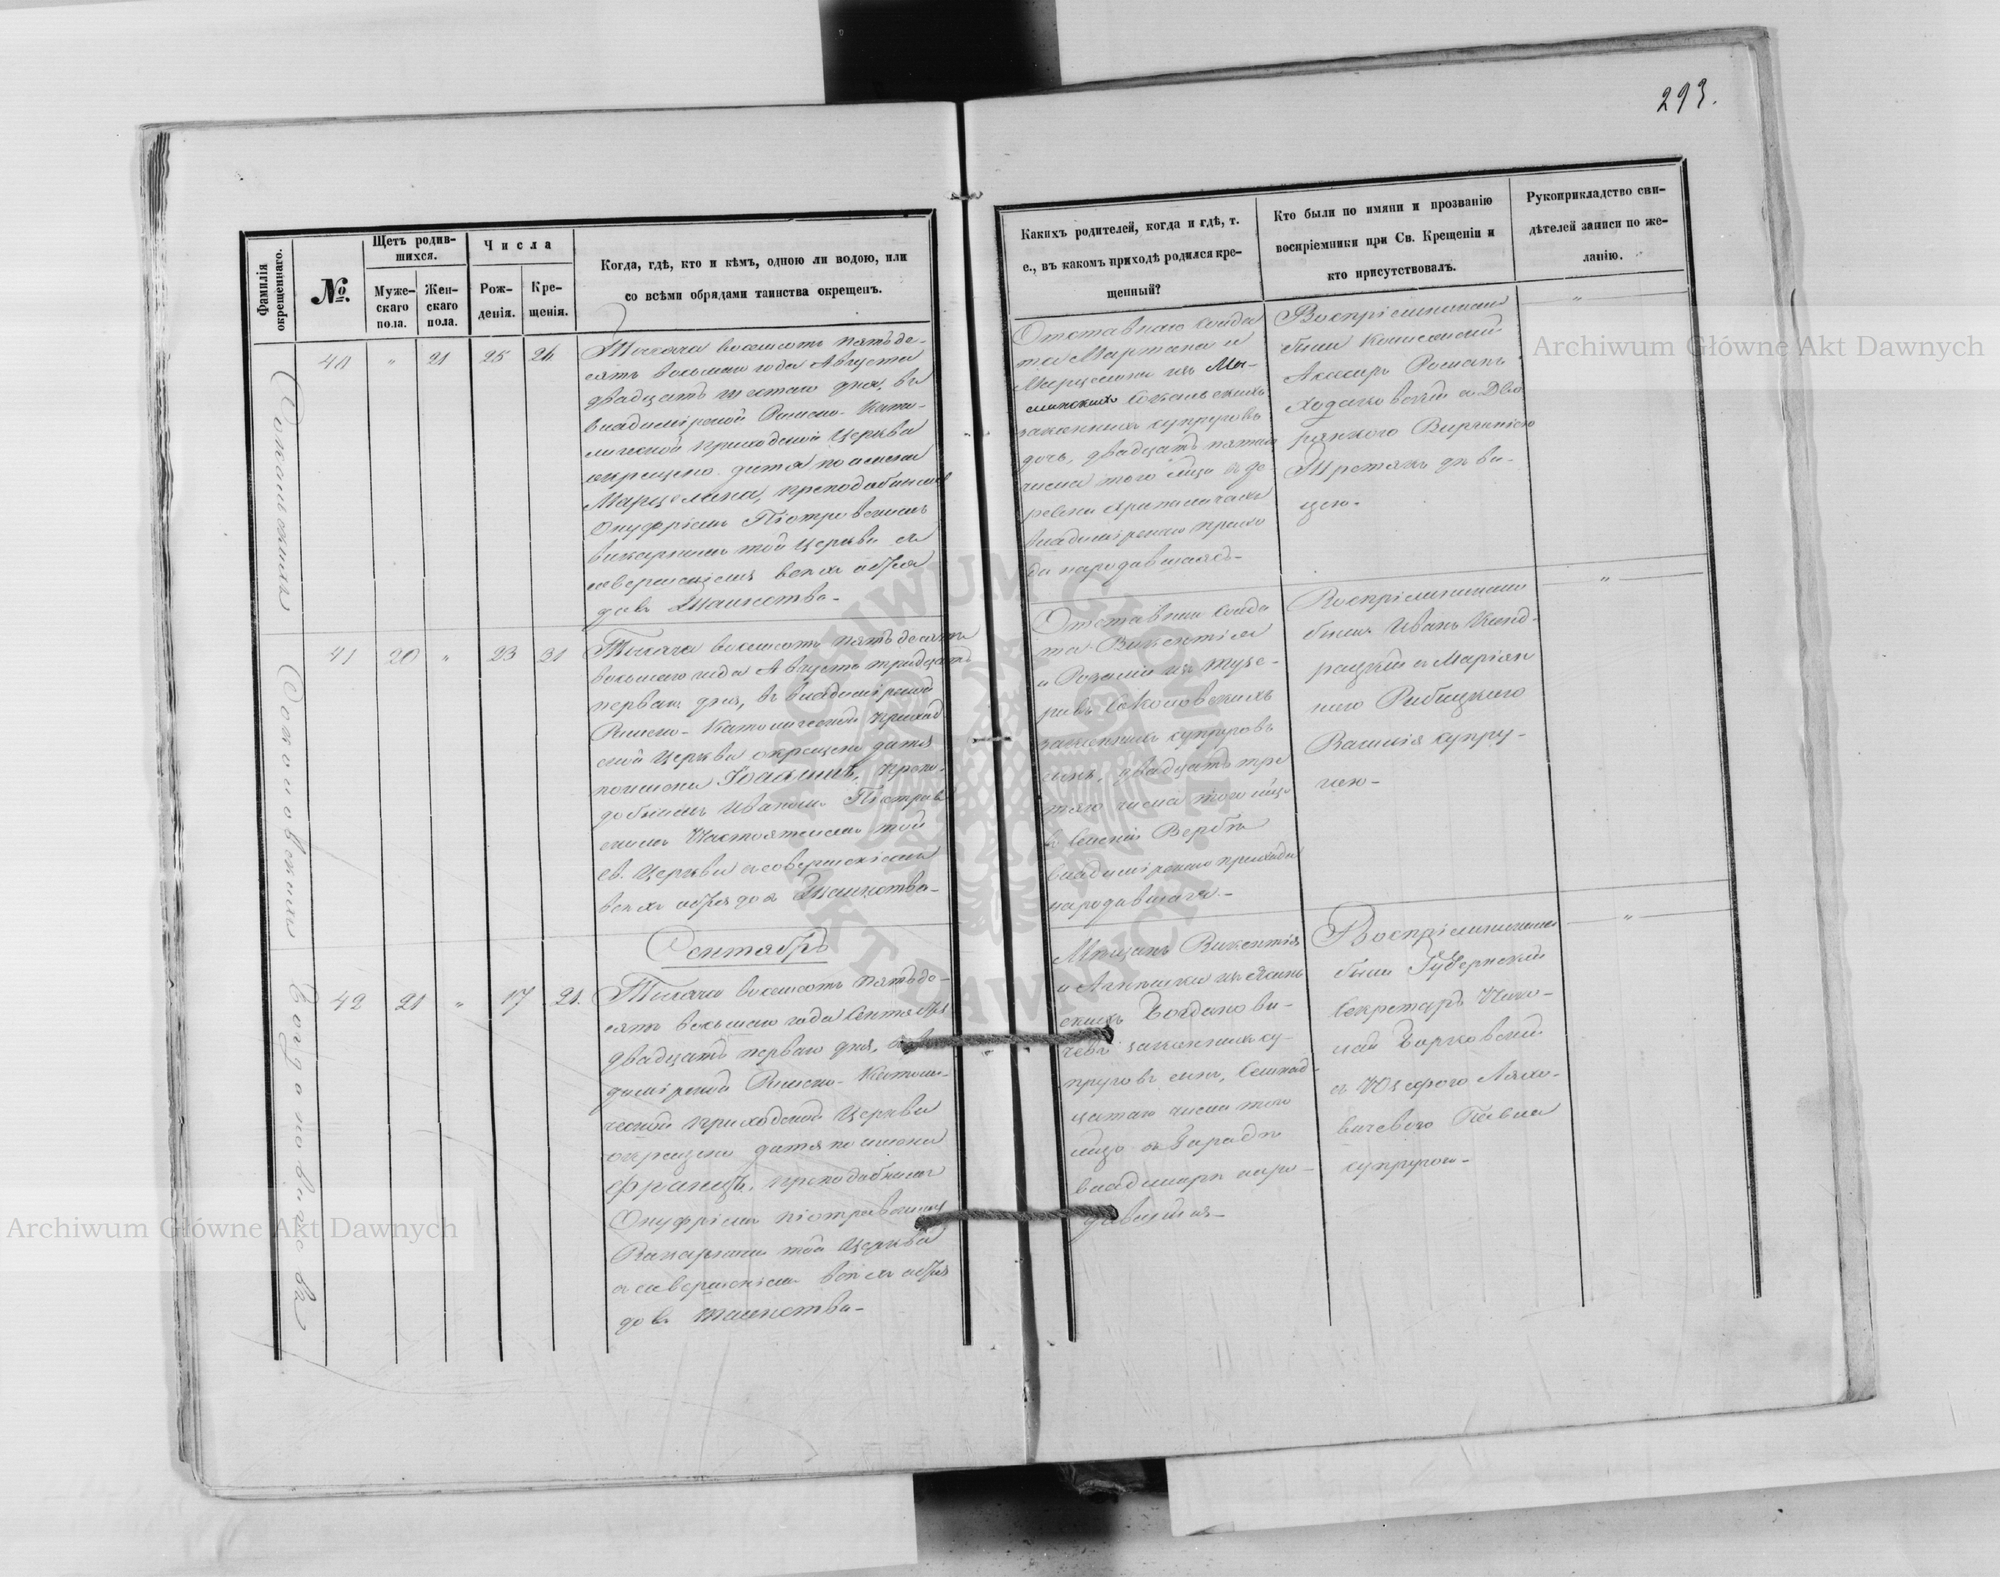 293.
Archiwum Główne Akt Dawnych
Фамилія окрещеннаго.
№.
Щетъ родив-
шихся.
Муже-
скаго
пола.
Жен-
скаго
пола.
Числа
Рож-
денія.
Кре-
щенія.
Когда, гдѣ, кто и кѣмъ, одною ли водою, или
со всѣми обрядами таинства окрещенъ.
Какихъ родителей, когда и гдѣ, т.
е., въ какомъ приходѣ родился кре-
щенный?
Кто были по имяни и прозванію
воспріемники при Св. Крещеніи и
кто присутствовалъ.
Рукоприкладство сви-
дѣтелей записи по же-
ланію.
40 " 21 25 26
Тысяча восемсотъ пятьде-
сятъ восьмаго года Августа
двадцать шестаго дня, въ
Владимірской Римско-Като-
лической приходской Церкви
окрещено дитя по имени
Марцелина, преподобнымъ
Онуфріемъ Піотровскимъ
викарнымъ той Церкви съ
совершеніемъ всѣхъ обря
довъ Таинства.-
Отставнаго Солда
та Мартина и
Марцелины изъ
законныхъ супруговъ
дочь, двадцать пятаго
числа того мѣсца въ де
ревни
Владимірскаго прихо
да народившаяся.-
Воспріемниками
были
Романъ
Ходаковскій съ Дво
рянкою Виргиніею
Третякъ дѣви-
цею.-
"
41 20 " 23 31
Тысяча восемсотъ пятьдесятъ
восьмаго года Августа тридцать
перваго дня, въ Владимірской
Римско-Католической приход
ской Церкви окрещено дитя
по имени Іоакимъ, препо-
добнымъ Иваномъ Піотров
скимъ Настоятелемъ той
св. Церкви съ совершеніемъ
всѣхъ обрядовъ Таинства.-
Отставнаго Солда
та Викентія
и Розаліи изъ
Соколовскихъ
законныхъ супруговъ
сынъ, двадцать тре
тяго числа того мѣсца
въ селеніи Вербѣ
Владимірскаго прихода
народившагося.-
Воспріемниками
были Иванъ Кинд-
рацкій съ Маріян
ною Рибицкою
Василія супру-
гою.-
"
Сентябрь
42 21 " 17 21.
Тысяча восемсотъ пятьде-
сятъ восьмаго года Сентября
двадцать перваго дня,
димірской Римско-Католи-
ческой приходской Церкви
окрещено дитя по имени
Францъ, преподобнымъ
Онуфріемъ Піотровскимъ
Викарнымъ той Церкви
съ совершеніемъ всѣхъ обря
довъ таинства.-
Мѣщанъ Викентія
и Агнѣшки изъ
Богданови-
чевъ законныхъ су-
пруговъ сынъ, Семнад-
цатаго числа того
мѣсца въ Городѣ
Владимірѣ наро-
дившійся.-
Воспріемниками
были Губернскій
Секретарь Нико-
лай Борковскій
съ Юзефою Ляхо-
вичевою Павла
супругою.-
"
Archiwum Główne Akt Dawnych
ARCHIWUM GŁÓWNE AKT DAWNYCH